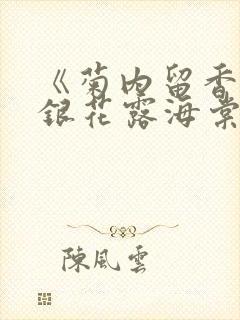 《菊内留香
銀花露海棠
陳風雲